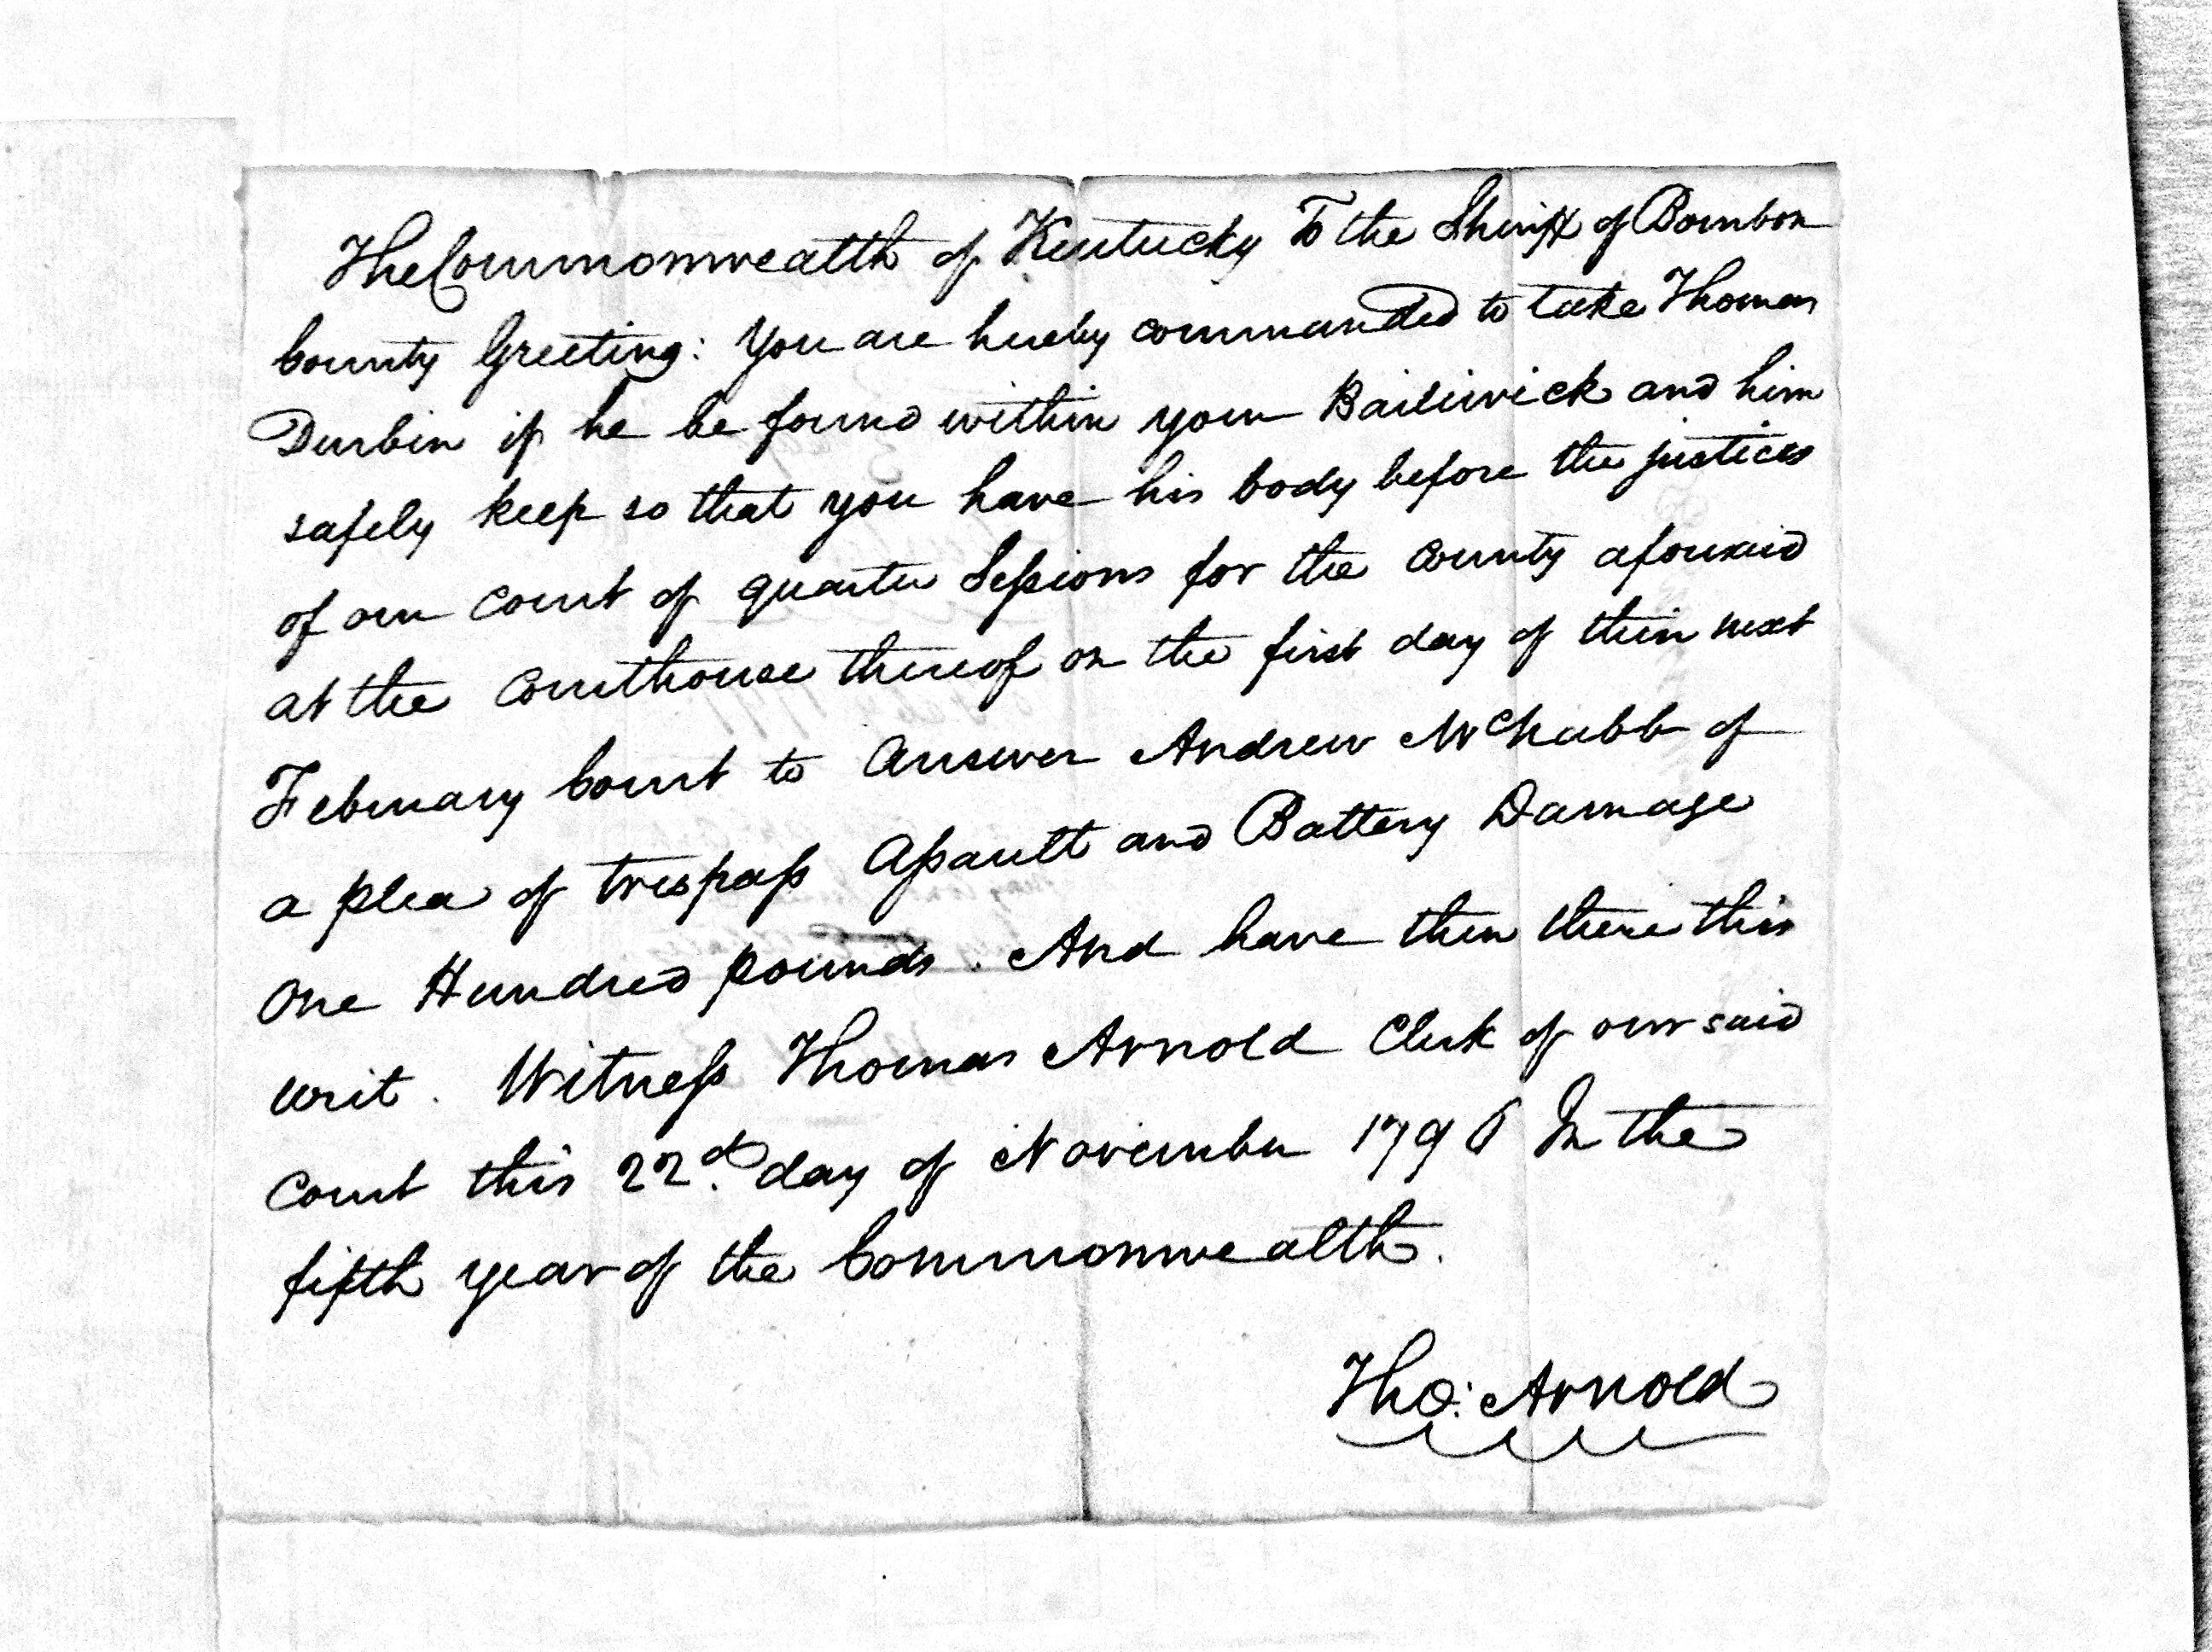 The Commonwealth of Kentucky To the Sheriff of Bourbon
County Greeting: You are hereby commanded to take Thomas
Durbin if he be found within your Bailiwick and him
safely keep so that you have his body before the justices
of our Court of quarter Sessions for the County aforesaid
at the Courthouse thereof on the first day of their next
February Court to answer Andrew McNabb of
a plea of trespass Assault and Battery Damage
One Hundred pounds. And have then there this
writ. Witness Thomas Arnold Clerk of our said
Court this 22d. day of November 1796 In the
fifth year of the Commonwealth.
Tho: Arnold